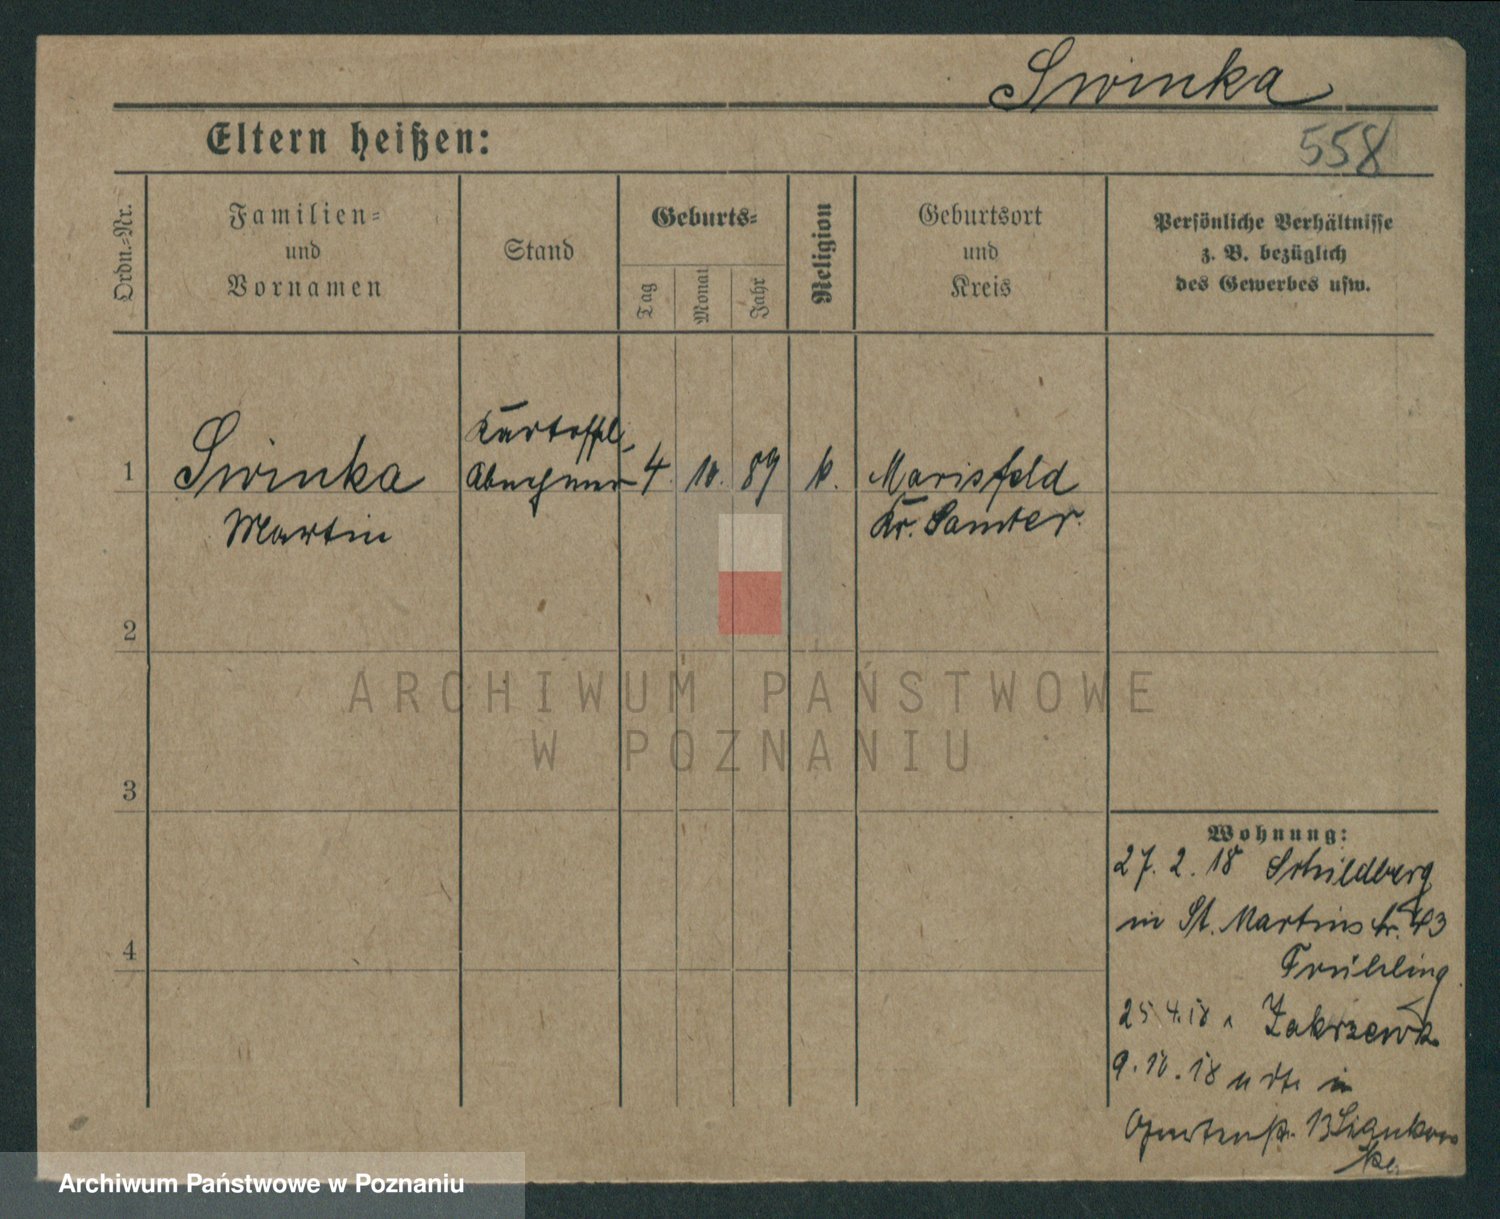 Swinka
558
Eltern heißen:
Ordn.=Nr.
Familien=
und
Vornamen
Stand
Geburts=
Tag
Monat
Jahr
Religion
Geburtsort
und
Kreis
Persönliche Verhältnisse
z. B. bezüglich
des Gewerbes usw.
1
Swinka
Martin
Kartoffel
Abnehmer
4. 10. 89
k.
Marisfeld
Kr. Samter
2
ARCHIWUM PAŃSTWOWE
W POZNANIU
3
Wohnung:
27. 2. 18 Schildberg
in St. Martinstr. 43
Frühling
25.4.18 n Zakrzewk
9. 10. 18 in
13
4
Archiwum Państwowe w Poznaniu